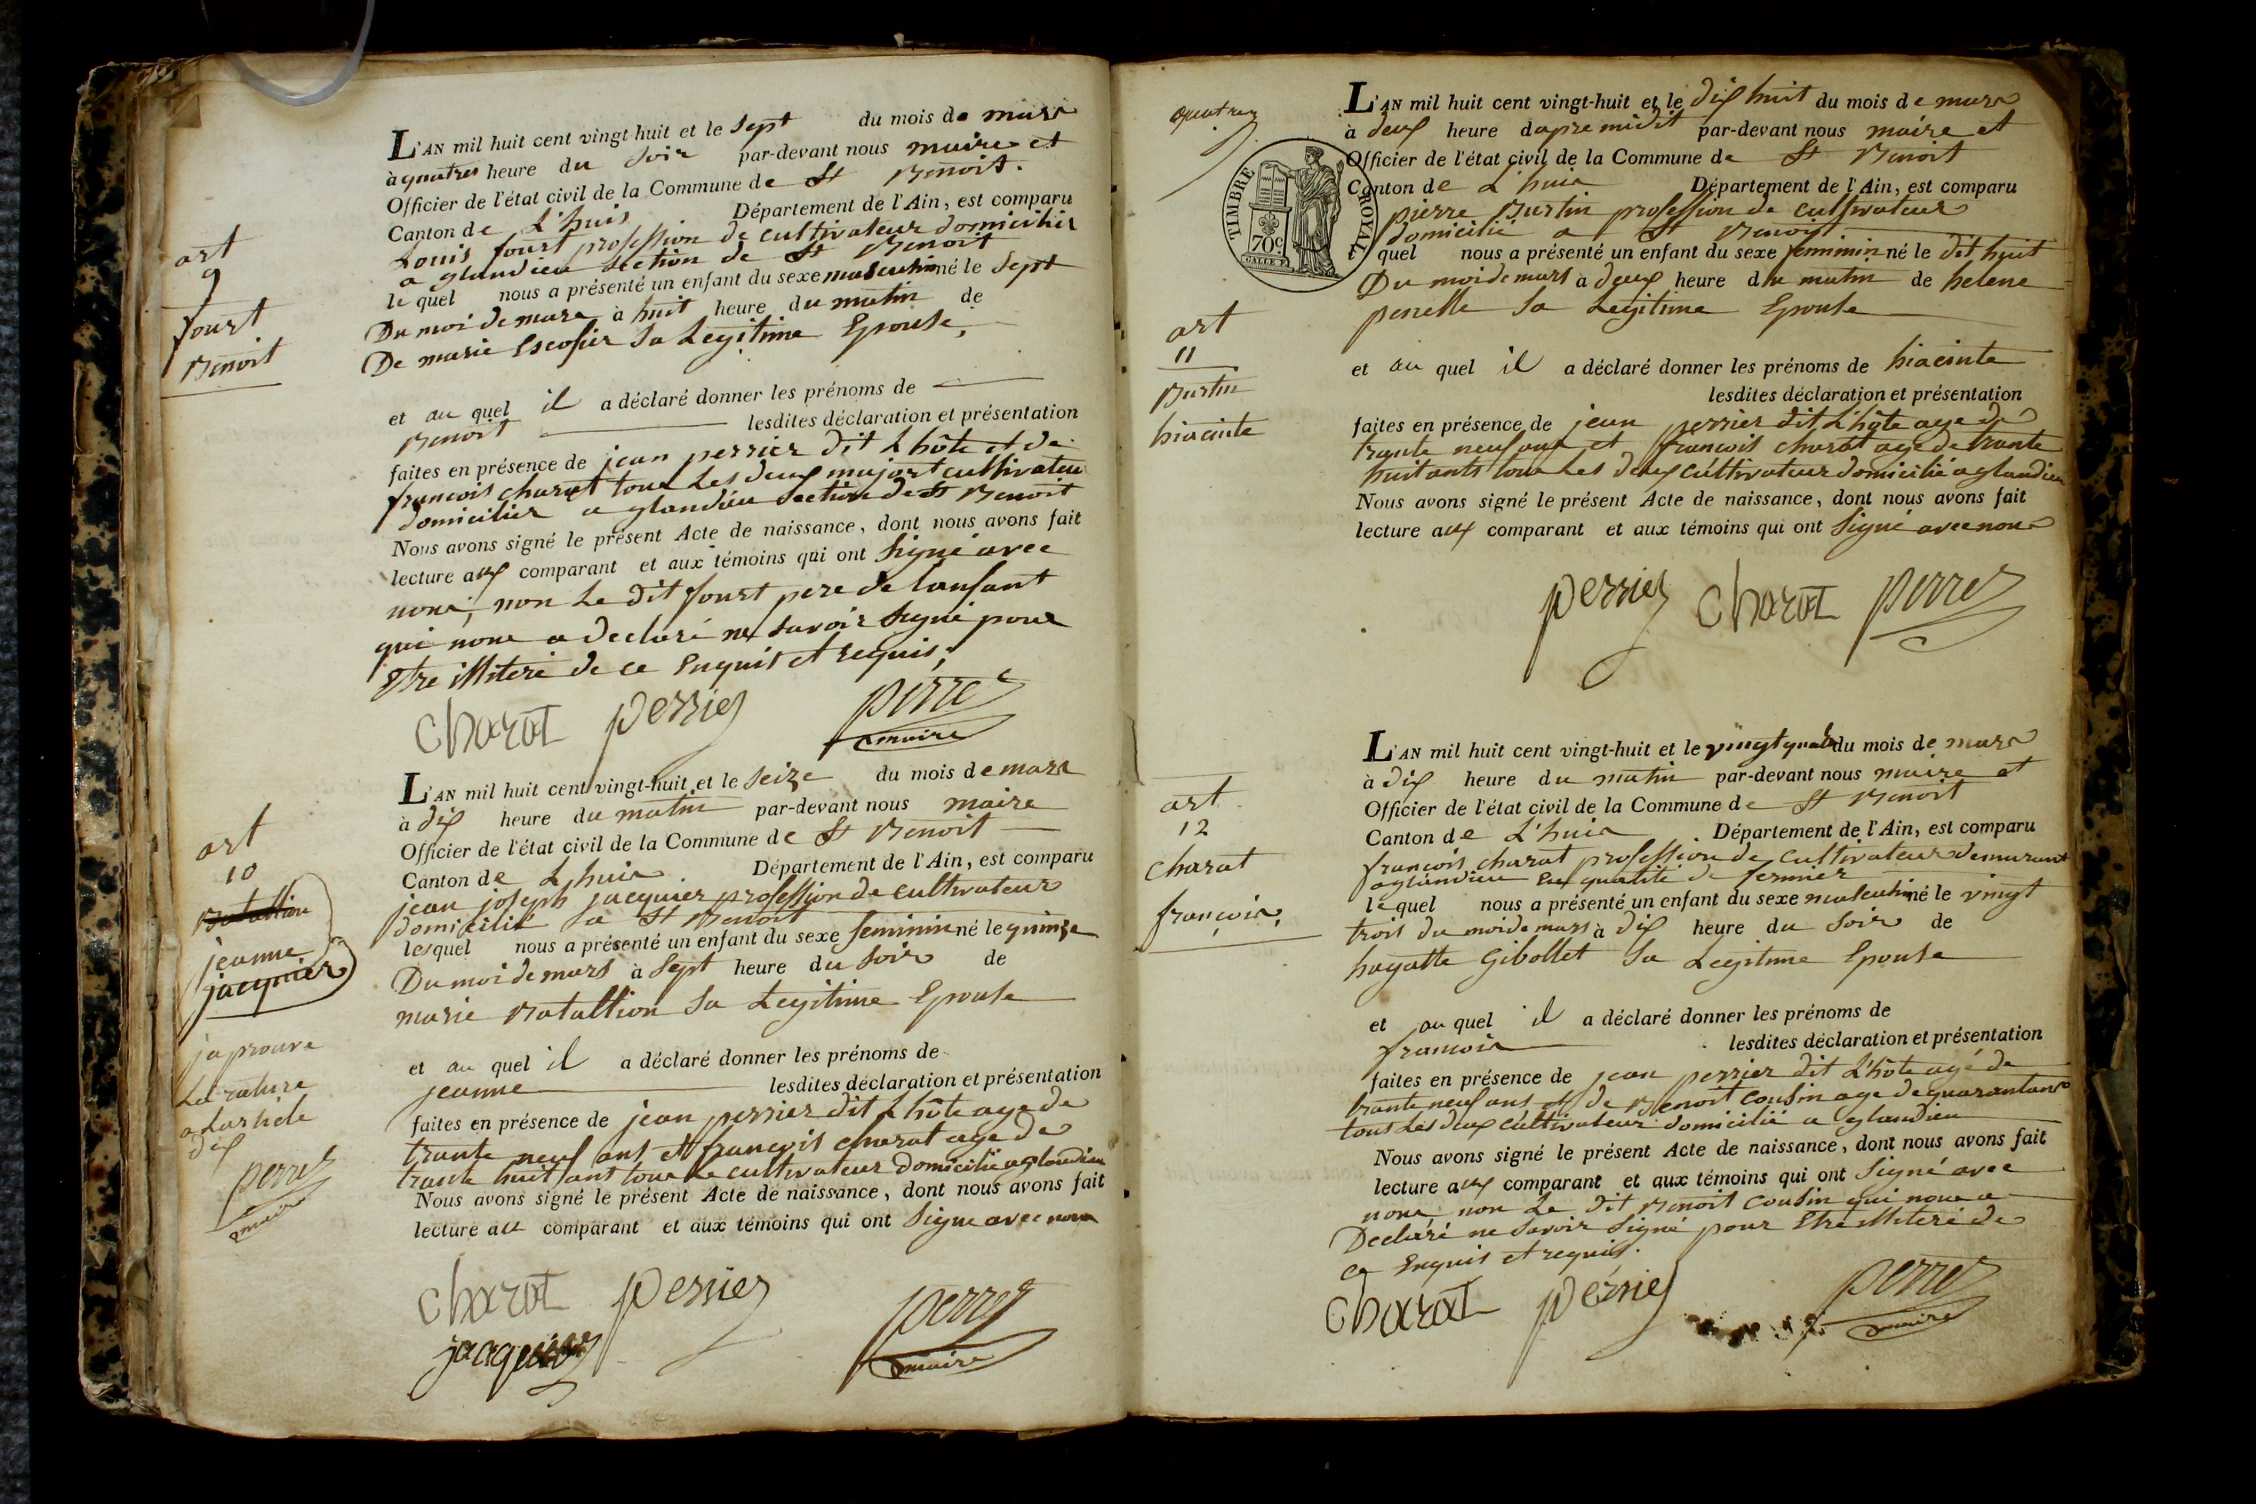 art
9
fourt
Benoit
L'AN mil huit cent vingt huit et le Sept du mois de mars
à quatres heure du Soir par-devant nous maire et
Officier de l'état civil de la Commune de St Benoit.
Canton de L'huis Département de l'Ain, est comparu
Louis fourt profession de cultivateur domicilier
a glandieu Section de St Benoit
le quel nous a présenté un enfant du sexe masculin né le Sept
Du moi de mars à huit heure du matin de
De marie Escofier Sa Legitime Epouse,
et au quel il a déclaré donner les prénoms de
Benoit lesdites déclaration et présentation
faites en présence de jean perrier dit L'hôte et de
francois charat tous Les deux majort cultivateu
domicilier a glandieu Section de St Benoit
Nous avons signé le présent Acte de naissance, dont nous avons fait
lecture aux comparant et aux témoins qui ont Signé avec
nous, non Le Dit fourt pere de lanfant
qui nous a declaré ne Savoir Signé pour
Etre illiteré de ce Enquis et requis,
Charat perrier perret
maire
art
10
Batallion
jeanne
jacquier
japrouve
La rature
a larticle
dix
perret
maire
L'AN mil huit cent vingt-huit et le Seize du mois de mars
à dix heure du matin par-devant nous maire
Officier de l'état civil de la Commune de St Benoit
Canton de L'huis Département de l'Ain, est comparu
jean joseph jacquier profession de cultivateur
domicilié a St Benoit
lesquel nous a présenté un enfant du sexe feminin né le quinze
Du moi de mars à Sept heure du Soir de
marie Batallion Sa Legitime Epouse
et au quel il a déclaré donner les prénoms de
jeanne lesdites déclaration et présentation
faites en présence de jean perrier dit L'hôte age de
trante neuf ans et françois charat age de
trante huit ant tous Le cultivateur domicilié a glandieu
Nous avons signé le présent Acte de naissance, dont nous avons fait
lecture au comparant et aux témoins qui ont Signe avec nous
Charat perrier perret
jacquier maire
quatres
TIMBRE ROYAL
70c
art
11
Burtin
hiacinte
L'AN mil huit cent vingt-huit et le dix huit du mois de mars
à deux heure dapre midit par-devant nous maire et
Officier de l'état civil de la Commune de St Benoit
Canton de L'huis Département de l'Ain, est comparu
pierre Burtin profession de cultivateur
domicilié a St Benoit
le quel nous a présenté un enfant du sexe feminin né le dit huit
Du moi de mars à deux heure du matin de helene
penelle Sa Legitime Epouse
et au quel il a déclaré donner les prénoms de hiacinte
lesdites déclaration et présentation
faites en présence de jean perrier dit L'hôte age de
trante neuf ans et françois charat age de trante
huit ants tous Les deux cultivateur domicilié a glandieu
Nous avons signé le présent Acte de naissance, dont nous avons fait
lecture aux comparant et aux témoins qui ont Signé avec nous
perrier Charat perret
art
12
charat
françois,
L'AN mil huit cent vingt-huit et le vingt quatre du mois de mars
à dix heure du matin par-devant nous maire et
Officier de l'état civil de la Commune de St Benoit
Canton de L'huis Département de l'Ain, est comparu
francois charat profession de cultivateur demurant
a glandieu En qualité de fermier
le quel nous a présenté un enfant du sexe masculin né le vingt
trois du moi de mars à dix heure du Soir de
hayatte Gibollet Sa Legitime Epouse
et au quel il a déclaré donner les prénoms de
francois lesdites déclaration et présentation
faites en présence de jean perrier dit L'hôte agé de
trante neuf ans et de Benoit Cousin age de quarantans
tout Les deux cultivateur domicilié a glandieu
Nous avons signé le présent Acte de naissance, dont nous avons fait
lecture aux comparant et aux témoins qui ont Signé avec
nous, non Le Dit Benoit Cousin qui nous a
Declaré ne Savoir Signé pour Etre illiteré de
ce Enquis et requis.
Charat perrier perret
maire